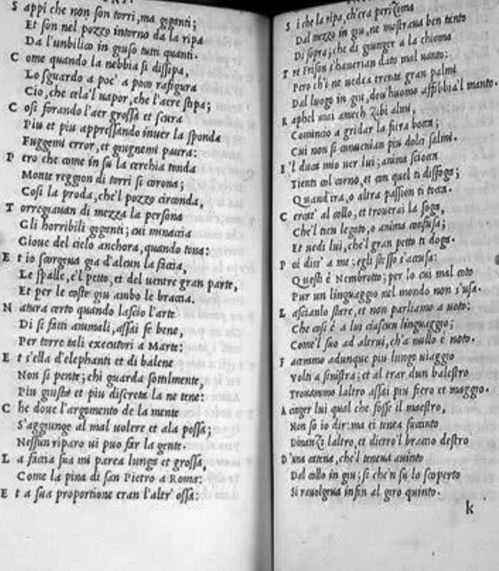 S appi che non son torri, ma giganti;
Et son nel pozzo intorno da la ripa
Da l'umbilico in giuso tutti quanti.
C ome quando la nebbia si dissipa,
Lo sguardo a poc' a poco rafigura
Cio, che cela'l vapor, che l'aere stipa;
C osi forando l'aer grossa et scura
Piu et piu appressando inver la sponda
Fuggemi error, et giugnemi paura:
P ero che come in su la cerchia tonda
Monte reggion di torri si corona;
Cosi la proda, che'l pozzo circonda,
T orregiavan di mezza la persona
Gli horribili giganti; cui minaccia
Giove del cielo anchora, quando tona:
E t io scorgeva gia d'alcun la faccia,
Le spalle, e'l petto, et del ventre gran parte,
Et per le coste giu ambo le braccia.
N atura certo quando lascio l'arte
Di si fatti animali, assai fe bene,
Per torre tali executori a Marte:
E t s'ella d'elephanti et di balene
Non si pente; chi guarda sottilmente,
Piu giusta et piu discreta la ne tene:
C he dove l'argomento de la mente
S'aggiunge al mal volere et ala possa;
Nessun riparo vi puo far la gente.
L a faccia sua mi parea lunga et grossa,
Come la pina di san Pietro a Roma:
E t a sua proportione eran l'altr' ossa:
S i che la ripa, ch'era perizoma
Dal mezzo in giu, ne mostrava ben tanto
Di sopra; che di giunger a la chioma
T re Frison s'haverian dato mal vanto:
Pero ch'i ne vedea trenta gran palmi
Dal luogo in giu, dov'huomo affibbia'l manto.
R aphel mai amech zabi almi,
Comincio a gridar la fiera bocca;
Cui non si convenian piu dolci salmi.
E 'l duca mio ver lui; anima sciocca
Tienti col corno, et con quel ti disfoga;
Quand'ira, o altra passion ti tocca.
C ercat' al collo, et troverai la soga,
Che'l tien legato, o anima confusa;
Et vedi lui, che'l gran petto ti doga.
P oi diss' a me; egli stesso s'accusa:
Questi è Nembrotto; per lo cui mal coto
Pur un linguaggio nel mondo non s'usa.
L asciamlo stare, et non parliamo a voto:
Che cosi è a lui ciascun linguaggio;
Come'l suo ad altrui, ch'a nullo è noto.
F acemmo adunque piu lungo viaggio
Volti a sinistra; et al trar d'un balestro
Trovammo laltro assai piu fiero et maggio.
A cinger lui qual che fosse il maestro,
Non so io dir: ma ei tenea succinto
Dinanzi laltro, et dietro'l braccio destro
D 'una catena, che'l teneva avinto
Dal collo in giu; si che'n su lo scoperto
Si ravolgeva infin al giro quinto.
k